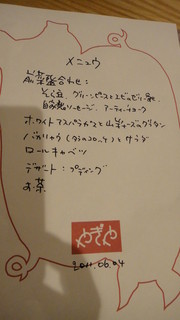 メニュウ
前菜盛合わせ：
そら豆、グリーンピースとエビのゼリー寄
自家製ソーセージ、アーティチョーク
ホワイトアスパラガスと山羊チーズのグラタン
バカリャウ とサラダ
ロールキャベツ
デザート：プディング
お茶
やぎや
2011.06.04